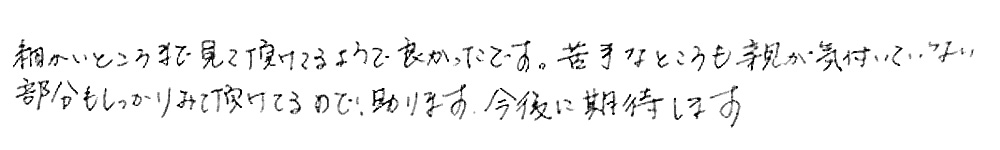 細かいところまで見て頂けてるようで良かったです。苦手なところも親が気付いていない
部分もしっかりみて頂けてるので、助ります。今後に期待します